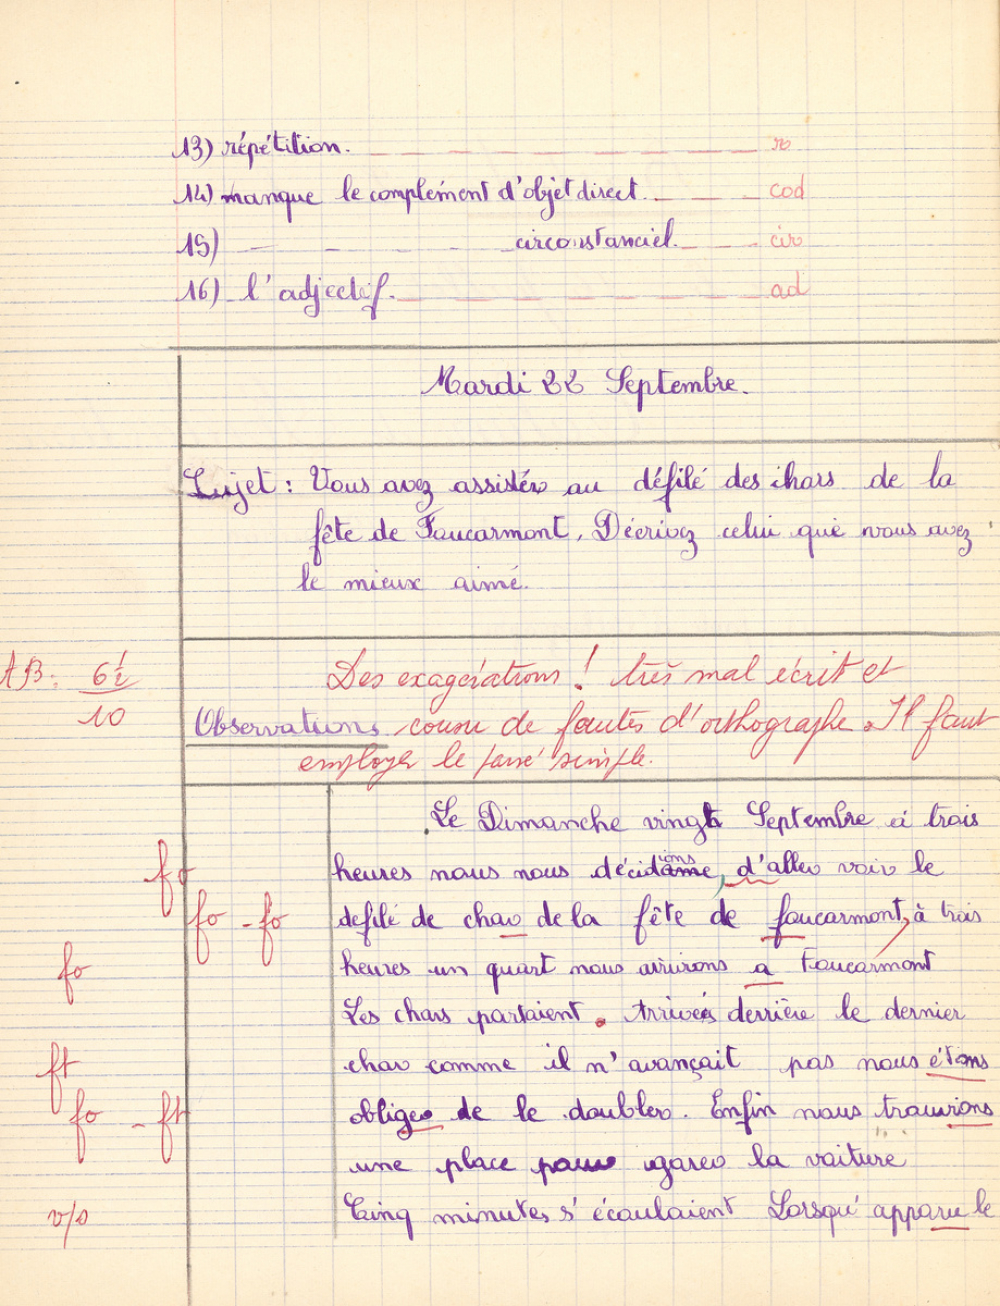 13) répétition. ro
14) manque le complément d'objet direct. cod
15) - - - - circonstanciel. cir
16) l'adjectif. ad
Mardi 22 Septembre.
Sujet : Vous avez assister au défilé des chars de la
fête de Foucarmont. Décrivez celui que vous avez
le mieux aimé.
AB. 6½
10
Des exagérations ! très mal écrit et
Observations cousu de fautes d'orthographe. Il faut
employer le passé simple.
Le Dimanche vingt Septembre à trois
fo heures nous nous décidâme ions, d'aller voir le
fo - fo defilé de char de la fête de foucarmont, à trois
fo heures un quart nous arrivions a Foucarmont
Les chars partaient. Arrivés derrière le dernier
ft char comme il n'avançait pas nous étions
fo - ft obliger de le doubler. Enfin nous trouvions
une place pour garer la voiture
v/s Cinq minutes s'écoulaient Lorsque apparu le